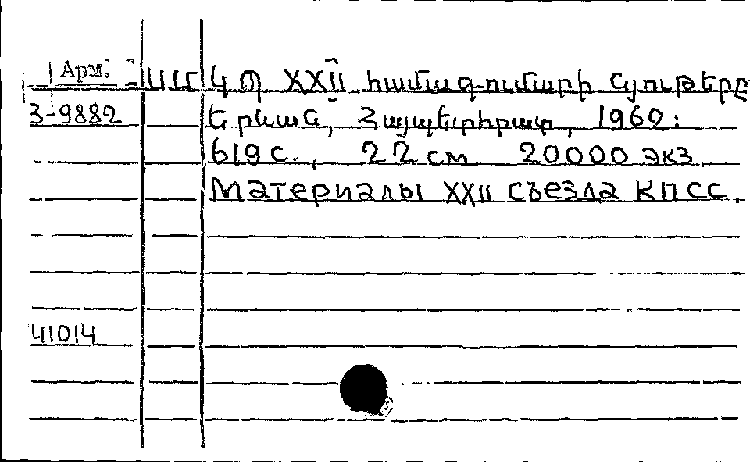 Арм.
ՍՄ ԿՊ XXII համագումարի նյութերը
3-9882
Երևան, Հայպետհրատ, 1960:
619 с., 22 см 20000 экз.
Материалы XXII съезда КПСС.
41014